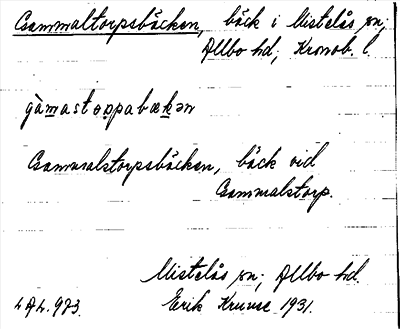 Gammaltorpsbäcken, bäck i Mistelås sn,
Allbo hd, Kronob. l.
gàmastoppabækən
Gammalstorpsbäcken, bäck vid
Gammalstorp.
Mistelås sn, Allbo hd.
Erik 1931.